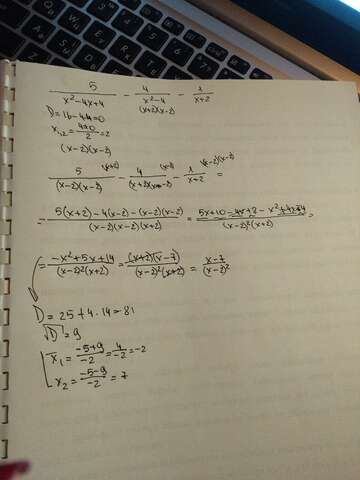 5/(x²-4x+4) - 4/(x²-4) - 1/(x+2)
(x+2)(x-2)
D=16-4·4=0
x₁,₂=(4±0)/2=2
(x-2)(x-2)
5/((x-2)(x-2)) (x+2) - 4/((x+2)(x-2)) (x-2) - 1/(x+2) (x-2)(x-2) =
= (5(x+2)-4(x-2)-(x-2)(x-2))/((x-2)(x-2)(x+2)) = (5x+10-4x+8-x²+4x-4)/((x-2)²(x+2)) =
= (-x²+5x+14)/((x-2)²(x+2)) = ((x+2)(x-7))/((x-2)²(x+2)) = (x-7)/(x-2)²
D=25+4·14=81
√D=9
x₁=(-5+9)/-2=4/-2=-2
x₂=(-5-9)/-2=7